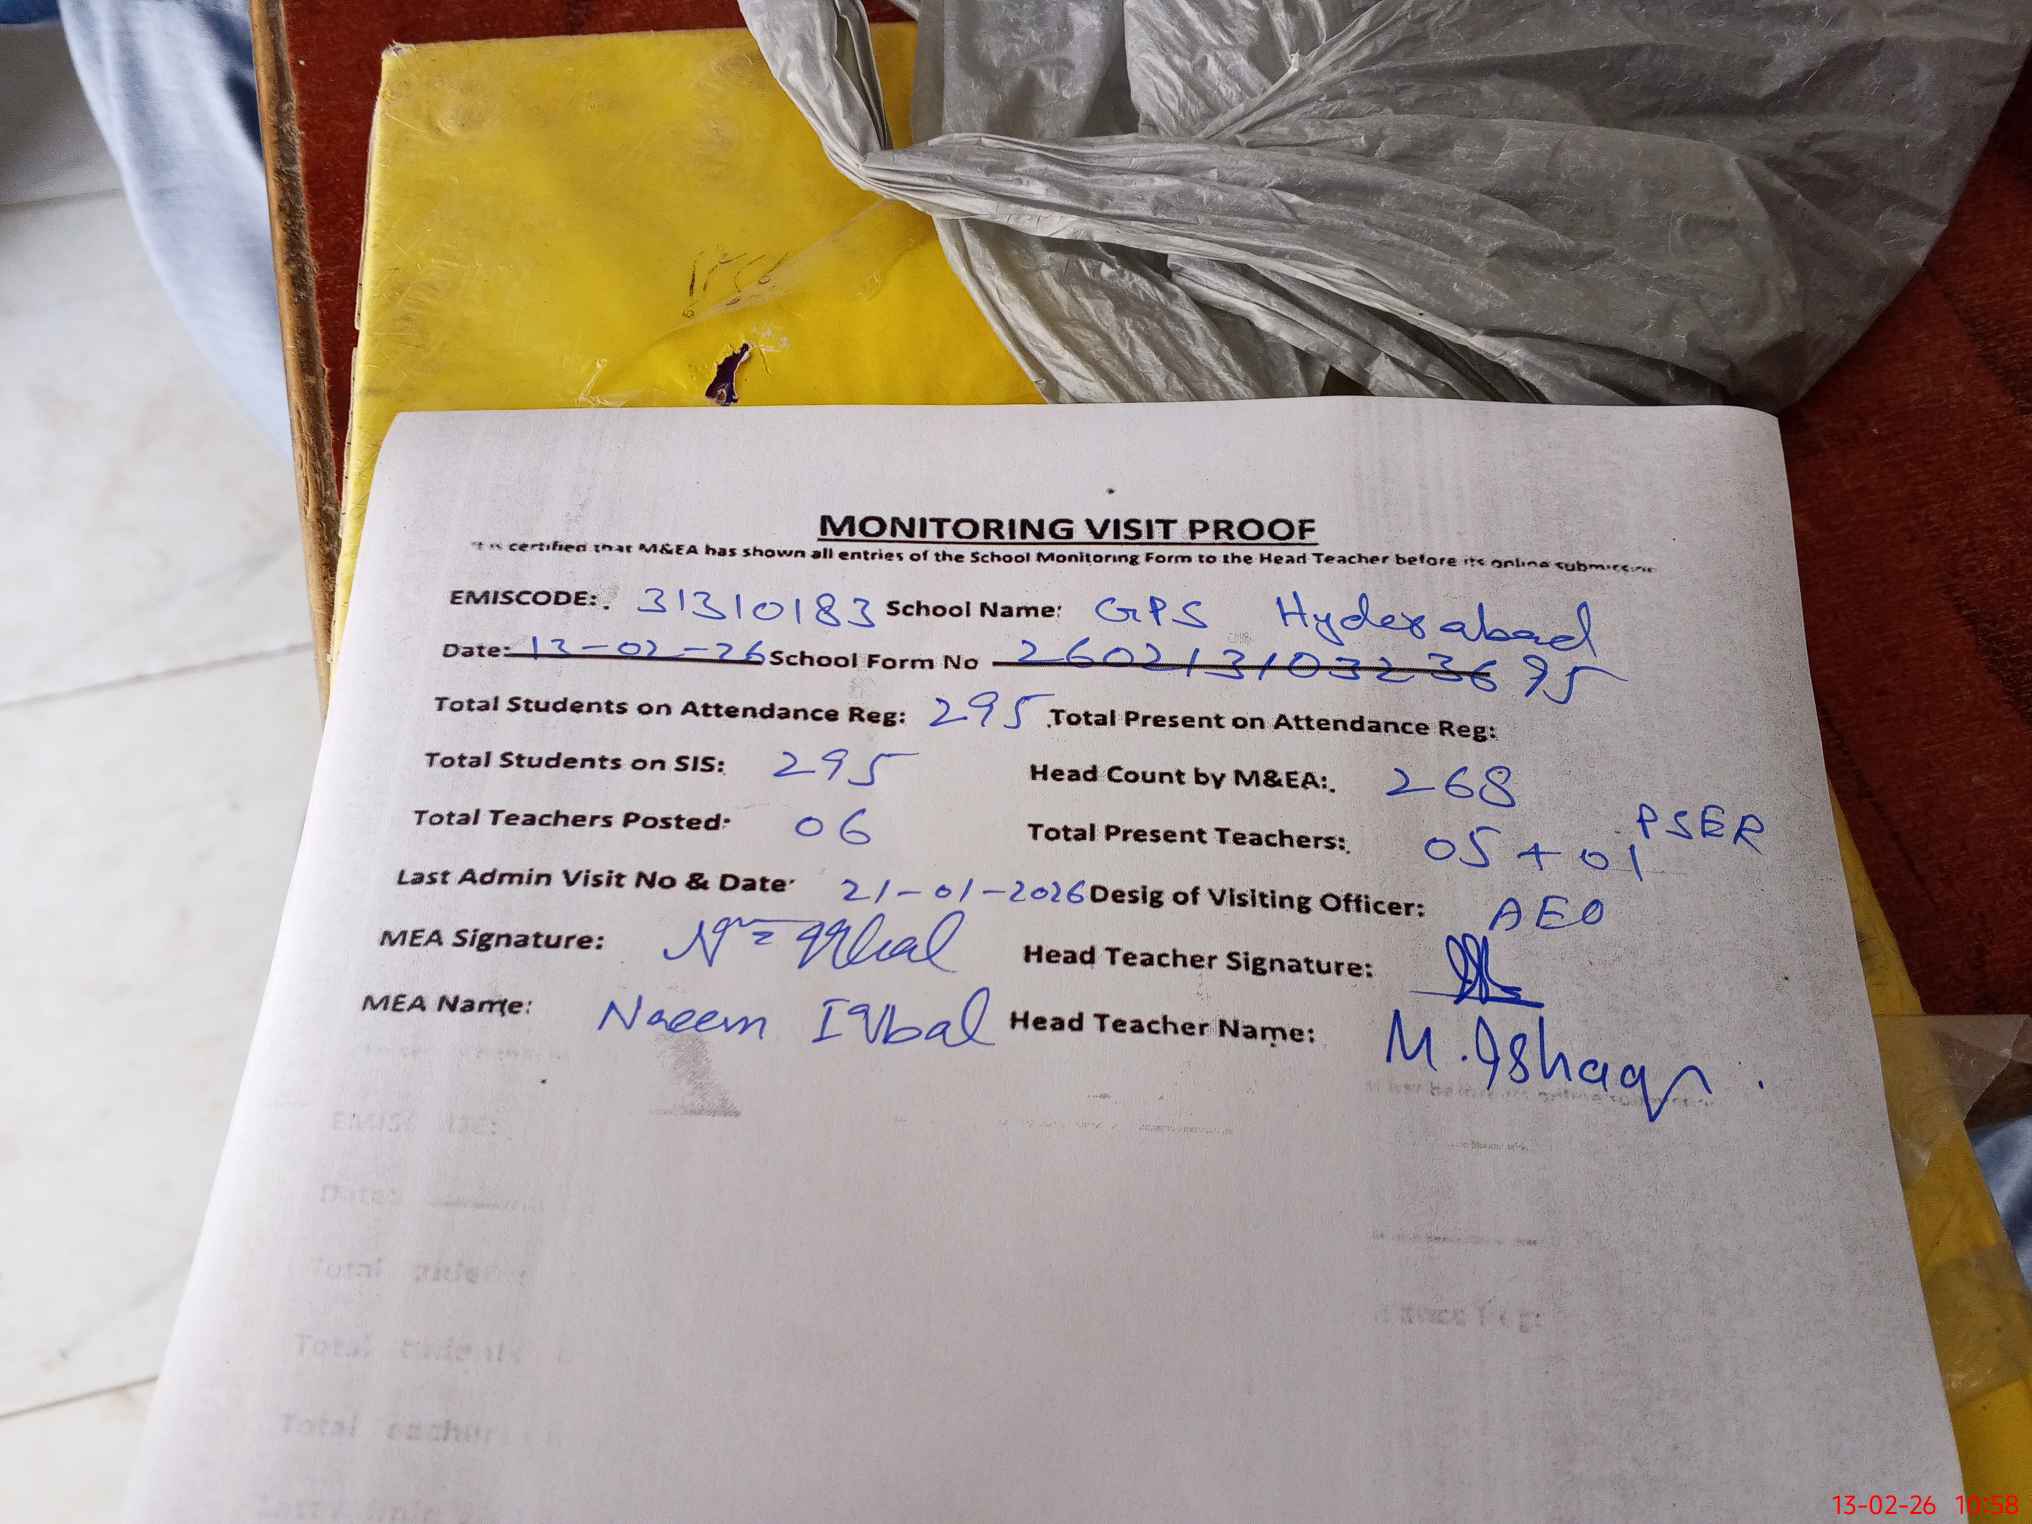 MONITORING VISIT PROOF
It is certified that M&EA has shown all entries of the School Monitoring Form to the Head Teacher before its online submission
EMISCODE: 31310183 School Name: GPS Hyderabad
Date: 13-02-26 School Form No 26021310323695
Total Students on Attendance Reg: 295 Total Present on Attendance Reg:
Total Students on SIS: 295 Head Count by M&EA: 268
Total Teachers Posted: 06 Total Present Teachers: 05 + 01 PSER
Last Admin Visit No & Date: 21-01-2026 Desig of Visiting Officer: AEO
MEA Signature: Head Teacher Signature:
MEA Name: Naeem Iqbal Head Teacher Name: M. Ishaq
13-02-26 10:58